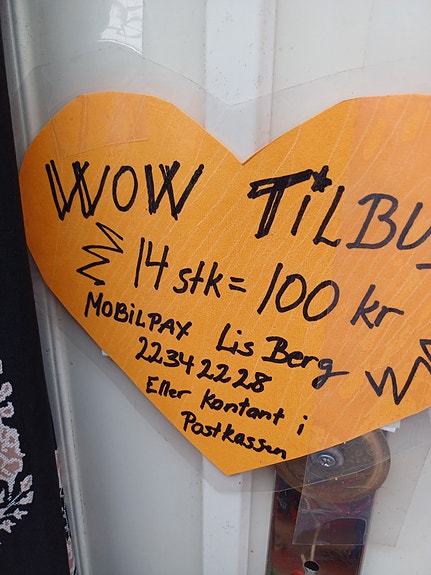 WOW TILBU
14 stk = 100 kr
MOBILPAX Lis Berg
22342228
Eller Kontant i
Postkassen